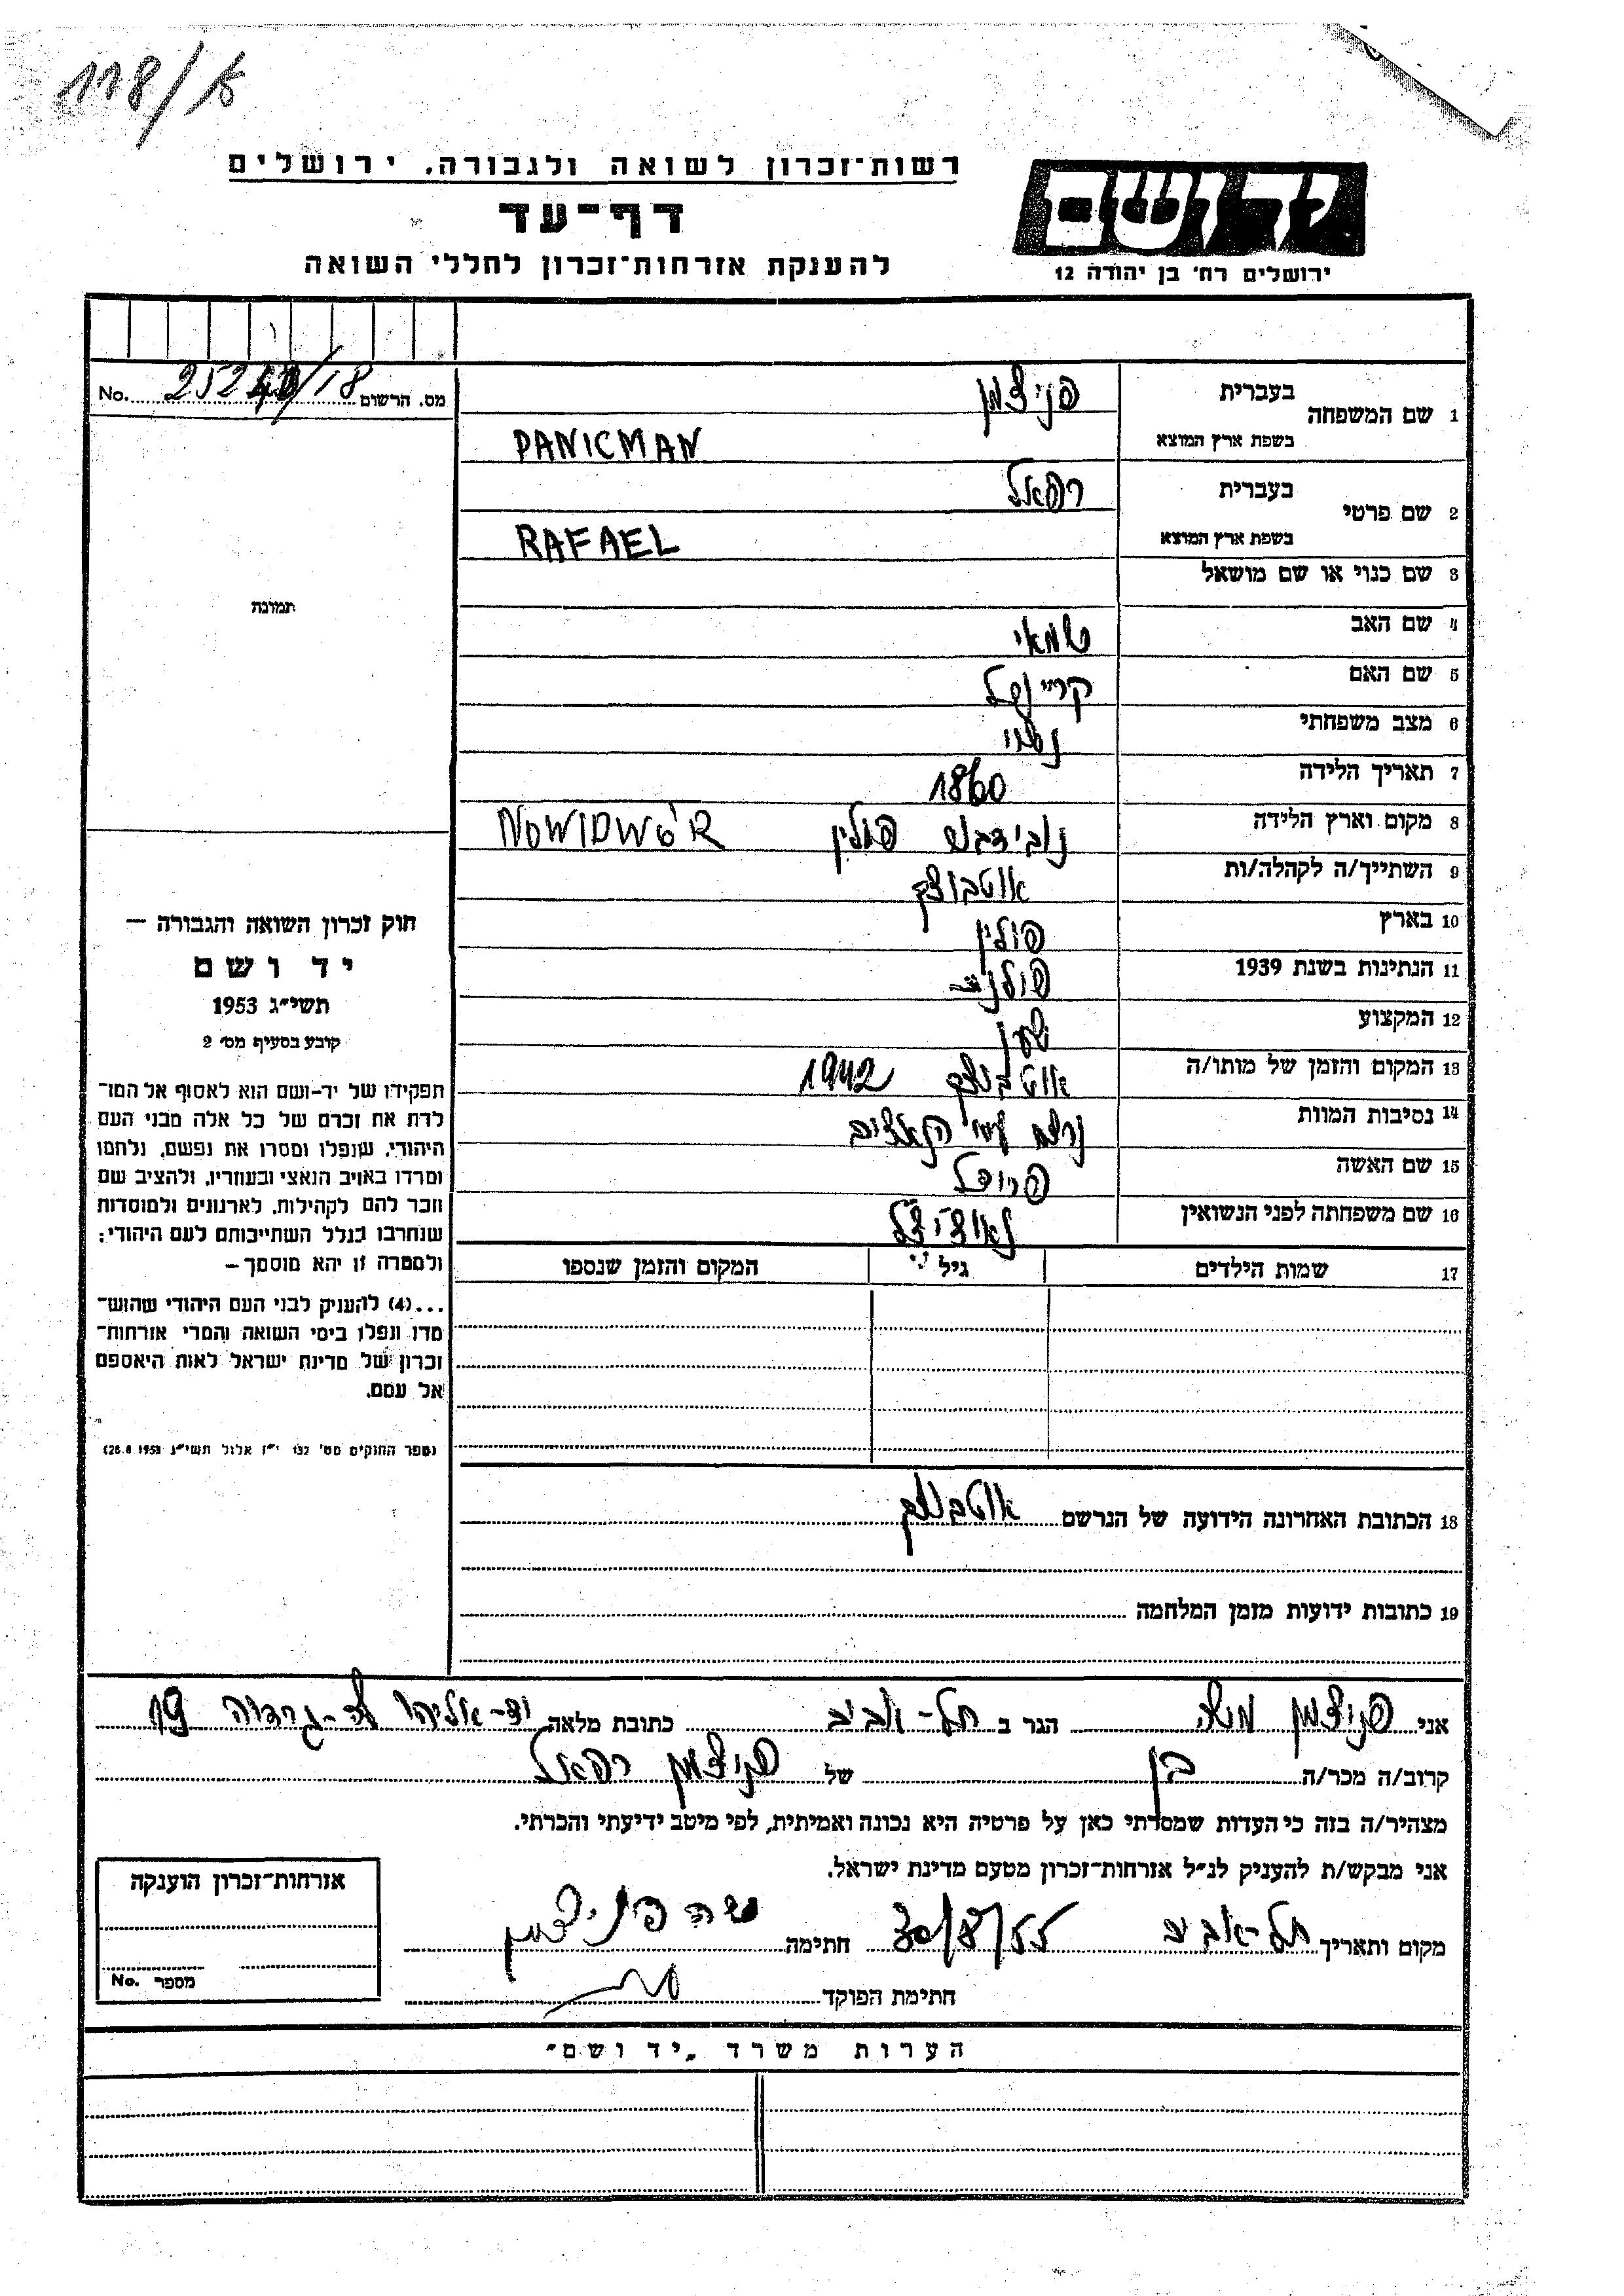 118/א
רשות־זכרון לשואה ולגבורה, ירושלים
דף־עד
להענקת אזרחות־זכרון לחללי השואה
יד ושם
ירושלים רח' בן יהודה 12
מס. הרשום No.
1 שם המשפחה בעברית פניצמן
בשפת ארץ המוצא PANICMAN
2 שם פרטי בעברית רפאל
בשפת ארץ המוצא RAFAEL
3 שם כנוי או שם מושאל
4 שם האב שמאי
5 שם האם
6 מצב משפחתי נשוי
7 תאריך הלידה 1860
8 מקום וארץ הלידה פולין NOWIDWÓR
9 השתייך/ה לקהלה/ות אוטבוצק
10 בארץ פולין
11 הנתינות בשנת 1939 פולנית
12 המקצוע
13 המקום והזמן של מותו/ה אוטבוצק 1942
14 נסיבות המוות נרצח ע"י הנאצים
15 שם האשה
16 שם משפחתה לפני הנשואין
17 שמות הילדים גיל המקום והזמן שנספו
תמונה
חוק זכרון השואה והגבורה —
יד ושם
תשי״ג 1953
קובע בסעיף מס׳ 2
תפקידו של יד-ושם הוא לאסוף אל המו־
לדת את זכרם של כל אלה מבני העם
היהודי, שנפלו ומסרו את נפשם, נלחמו
ומרדו באויב הנאצי ובעוזריו, ולהציב שם
וזכר להם לקהילות, לארגונים ולמוסדות
שנחרבו בגלל השתייכותם לעם היהודי;
ולמטרה זו יהא מוסמך —
...(4) להעניק לבני העם היהודי שהוש־
מדו ונפלו בימי השואה והמרי אזרחות־
זכרון של מדינת ישראל לאות היאספם
אל עמם.
(ספר החוקים מס׳ 132 י״ז אלול תשי״ג 28.8.1953)
18 הכתובת האחרונה הידועה של הנרשם אוטבוצק
19 כתובות ידועות מזמן המלחמה
אני פניצמן משה הגר ב תל-אביב כתובת מלאה יד-אליהו לה-גרדיה 19
קרוב/ה מכר/ה בן של פניצמן רפאל
מצהיר/ה בזה כי העדות שמסרתי כאן על פרטיה היא נכונה ואמיתית, לפי מיטב ידיעתי והכרתי.
אני מבקש/ת להעניק לנ״ל אזרחות־זכרון מטעם מדינת ישראל.
מקום ותאריך תל-אביב חתימה משה פניצמן
חתימת הפוקד
אזרחות־זכרון הוענקה
מספר No.
הערות משרד „יד ושם״